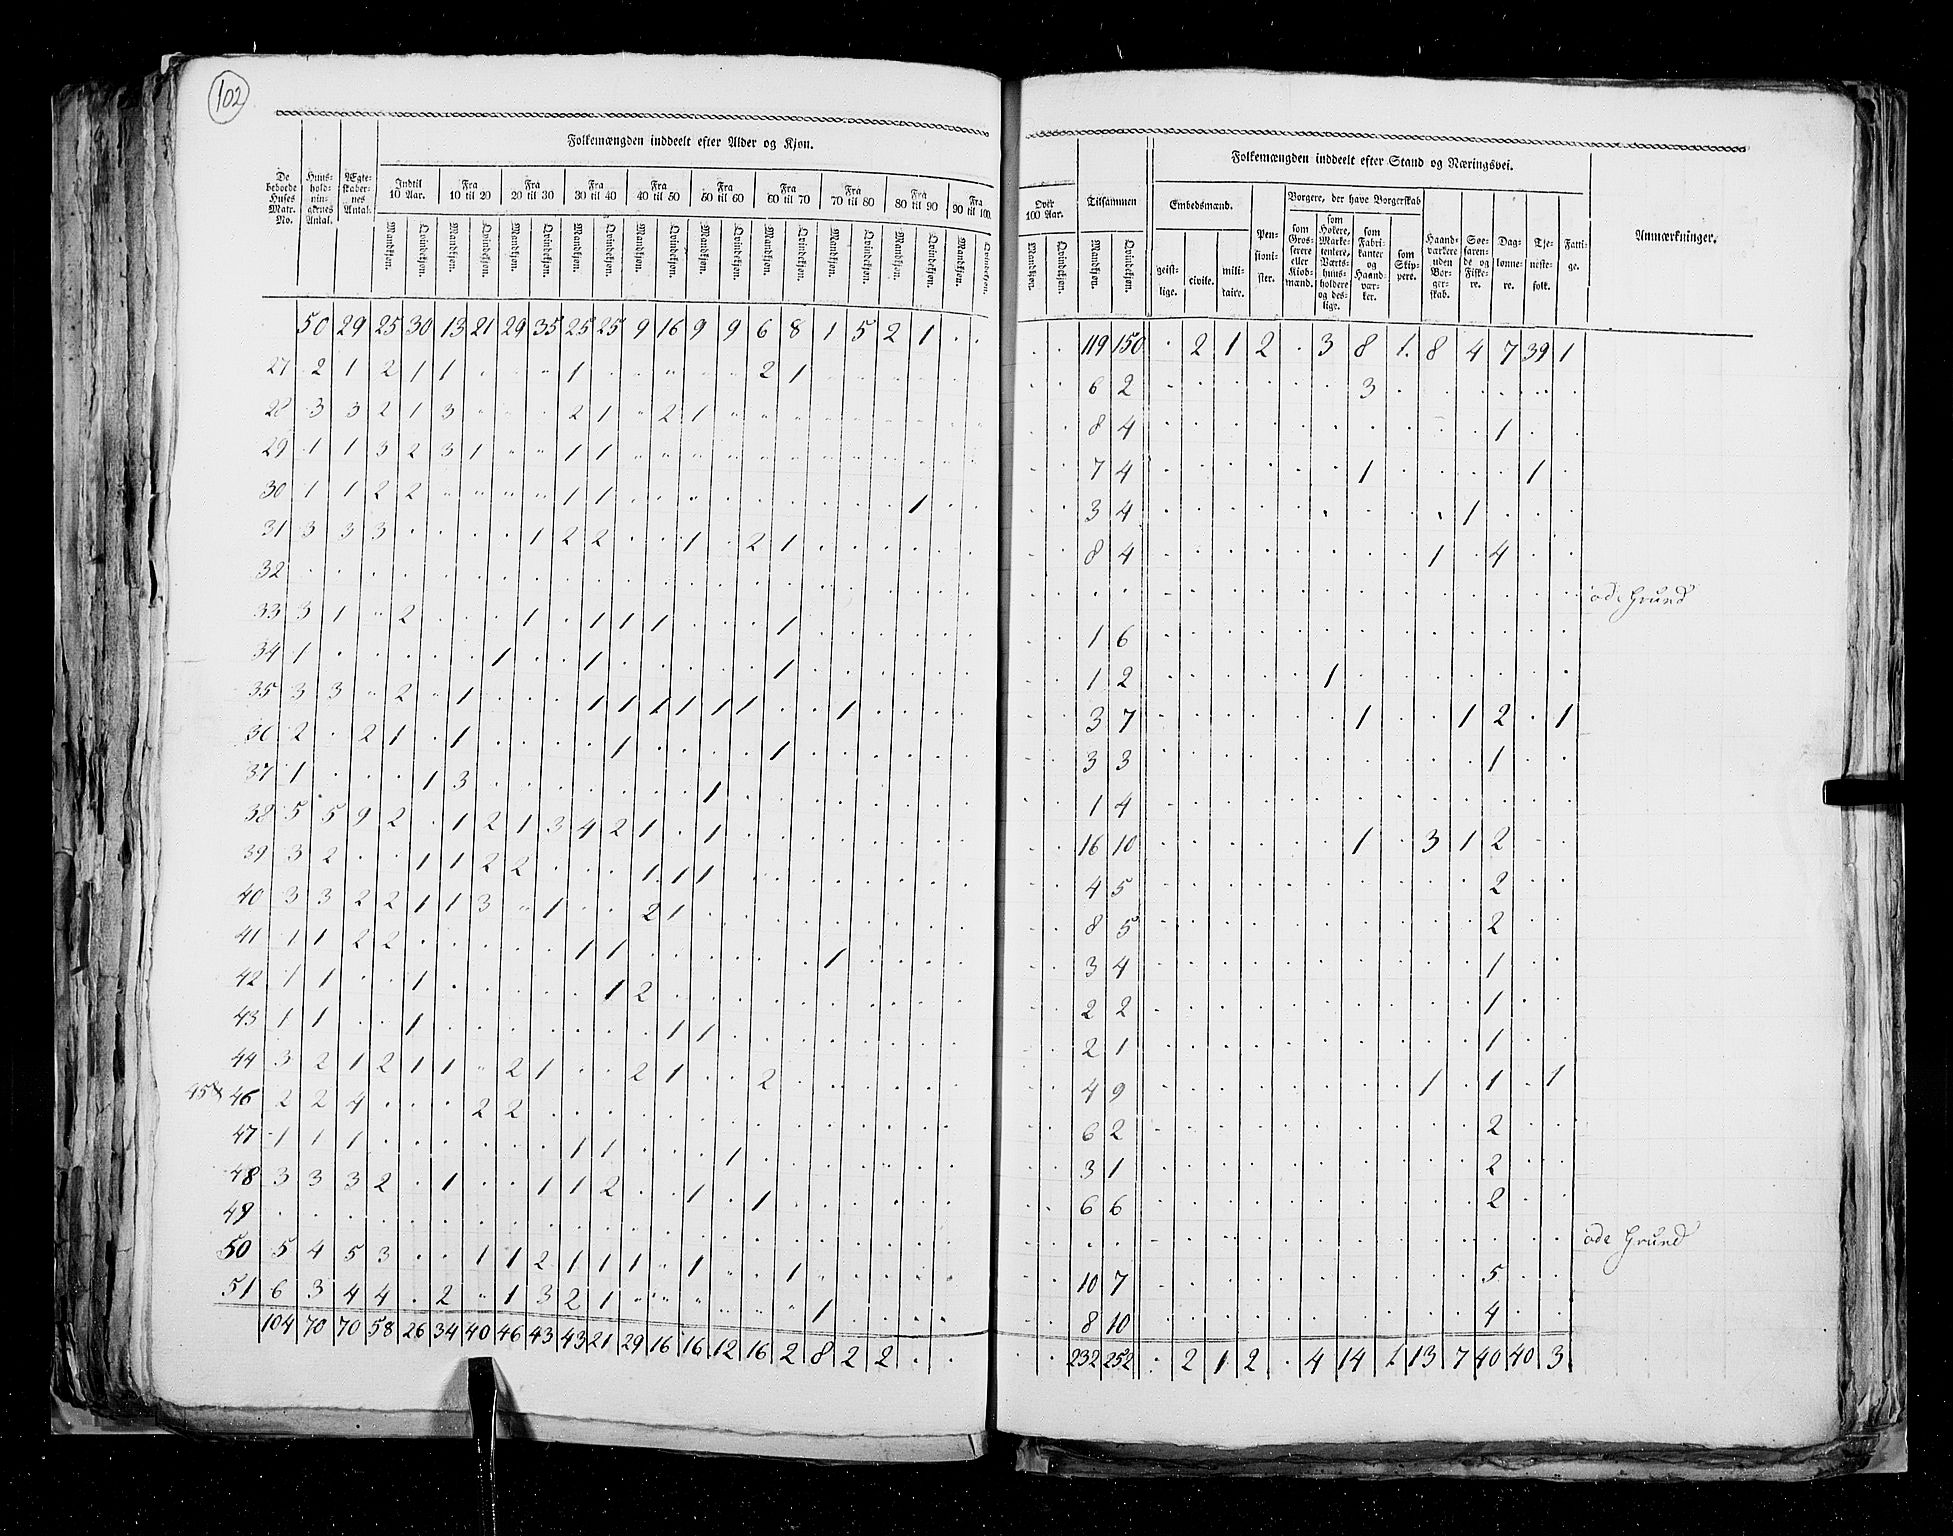 102
Folkemængden inddeelt efter Alder og Kjøn.
De beboede Huses Matr. No. | Huus-hold-nin-gernes Antal. | Ægte-skaber-nes Antal. | Indtil 10 Aar. | Fra 10 til 20 | Fra 20 til 30 | Fra 30 til 40 | Fra 40 til 50 | Fra 50 til 60 | Fra 60 til 70 | Fra 70 til 80 | Fra 80 til 90 | Fra 90 til 100
Mandkjøn. Qvindekjøn. Mandkjøn. Qvindekjøn. Mandkjøn. Qvindekjøn. Mandkjøn. Qvindekjøn. Mandkjøn. Qvindekjøn. Mandkjøn. Qvindekjøn. Mandkjøn. Qvindekjøn. Mandkjøn. Qvindekjøn. Mandkjøn. Qvindekjøn. Mandkjøn. Qvindekjøn.
50 29 25 30 13 21 29 35 25 25 9 16 9 9 6 8 1 5 2 1 . .
27 2 1 2 1 1 . . . 1 . . . . . 2 1
28 3 3 2 1 3 . . . 2 1 . 2 1
29 1 1 3 2 3 1 . . 1 1
30 1 1 2 2 . . . . 1 1 . . . . . . . . . 1
31 3 3 3 . . . . 1 2 2 . . 1 . 2 1
32
33 3 1 . 2 . . . 1 . 1 1 1 . . . 1
34 1 . . . . . 1 . . 1 . . . . . 1
35 3 3 . 2 . 1 . . . 1 1 1 1 1 1 . . 1
36 2 . 2 1 . 1 . . . . 1 . . . . 1
37 1 . . . 1 3 . . . . . . . 1
38 5 5 9 2 . 1 2 1 3 4 2 1 . 1
39 3 2 . . 1 1 2 2 . . . 1 1 1
40 3 3 2 2 1 1 3 . 1 . . 2 1
41 1 1 2 2 . . . . . 1 1 . . . . . . 1
42 1 1 . . 1 . . . . . 1 2
43 1 1 . . 1 . . . . . . . 1 1
44 3 2 1 2 1 1 . 2 1 . . 2 1 . . 2
45 & 46 2 2 4 . . . 2 2
47 1 1 1 . . . . . . 1 1 . . . 1
48 3 3 3 2 . 1 . . 1 1 2 . . 1 . 1
49
50 5 4 5 3 . . 1 1 2 1 1 1 . 1 . . 1
51 6 3 4 4 . 2 . 1 3 2 1 . . . . . . 1
104 70 70 58 26 34 40 46 43 43 21 29 16 16 12 16 2 8 2 2 . .
Over 100 Aar. | Tilsammen | Folkemængden inddeelt efter Stand og Næringsvei. | Anmærkninger.
Mandkjøn. Qvindekjøn. Mandkjøn. Qvindekjøn.
Embedsmænd. geist-lige. civile. mili-taire. | Pen-sioni-ster. | Borgere, der have Borgerskab som Gros-serere eller Kiøb-mænd. | som Høkere, Marke-tentere, Værts-huus-holdere og des-lige. | som Fabri-kanter og Haand-vær-ker. | som Skip-pere. | Haand-værkere uden Bor-ger-skab. | Søe-faren-de og Fiske-re. | Dag-lønne-re. | Tje-neste-folk. | Fatti-ge.
. . 119 150 . 2 1 2 . 3 8 1. 8 4 7 39 1
. . 6 2 . . . . . . 3
. . 8 4 . . . . . . . . . . 1
. . 7 4 . . . . . . 1 . . . . 1
. . 3 4 . . . . . . . . . 1
. . 8 4 . . . . . . . . 1 . 4
. . . . öde Grund
. . 1 6
. . 1 2 . . . . . 1
. . 3 7 . . . . . . 1 . . 1 2 . 1
. . 3 3 . . . . . . . . . . 1
. . 1 4
. . 16 10 . . . . . . 1 . 3 1 2
. . 4 5 . . . . . . . . . . 2
. . 8 5 . . . . . . . . . . 2
. . 3 4 . . . . . . . . . . 1
. . 2 2 . . . . . . . . . . 1
. . 2 1 . . . . . . . . . . 1
. . 4 9 . . . . . . . . 1 . 1 . 1
. . 6 2 . . . . . . . . . . 2
. . 3 1 . . . . . . . . . . 2
. . 6 6 . . . . . . . . . . 2
. . . . öde Grund
. . 10 7 . . . . . . . . . . 5
. . 8 10 . . . . . . . . . . 4
. . 232 252 . 2 1 2 . 4 14 1 13 7 40 40 3